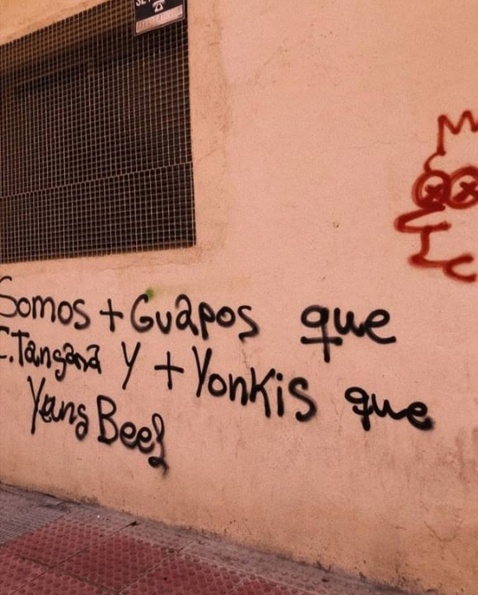 Somos + Guapos que
C.Tangana Y + Yonkis que
Yung Beef